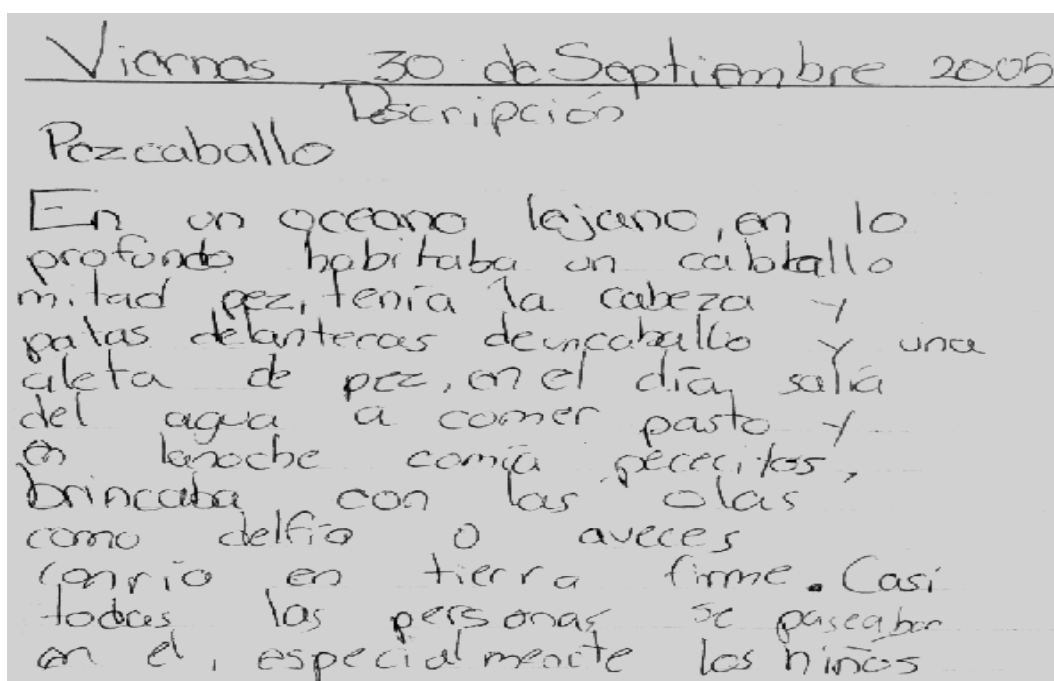 Viernes 30 de Septiembre 2005
Descripción
Pezcaballo
En un oceano lejano, en lo
profundo habitaba un caballo
mitad pez, tenía la cabeza y
patas delanteras deuncaballo y una
aleta de pez, en el día, salía
del agua a comer pasto y
en lanoche comía pececitos,
brincaba con las olas
como delfín o aveces
corrío en tierra firme. Casi
todas las personas se paseaban
en el, especialmente los niños